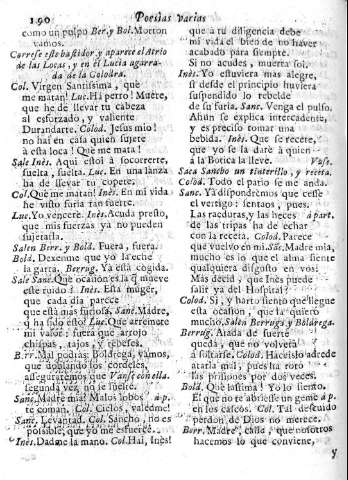 190 Poesias varias
como un pulpo Ber. y Bol. Morton
vamos.
Correse este bastidor, y aparece el Atrio
de las Locas, y en èl Lucia agarra-
da de la Colodra.
Col. Virgen Santissima, què
me matan! Luc. Hà perro! Muere,
que he de llevar tu cabeza
al esforzado, y valiente
Durandarte. Colod. Jesus mio!
no hai en casa quien sujete
à esta loca! Que me mata!
Sale Inès. Aqui estoi à socorrerte,
suelta, suelta. Luc. En una lanza
ha de llevar tu copete.
Col. Què me matan! Inès. En mi vida
he visto furia tan fuerte.
Luc. Yo vencerè. Inès. Acuda presto,
que mis fuerzas ya no pueden
sujetarla.
Salen Berr. y Bold. Fuera, fuera.
Bold. Dexenme que yo la eche
la garra. Berrug. Ya està cogida.
Sale Sanc. Que ocasion es la q̃ mueve
este ruido? Inès. Esta muger,
que cada dia parece
que està mas furiosa. Sanc. Madre,
q̃ ha sido esto? Luc. Que arremete
mi valor: fuera que arrojo
chispas, rayos, y rebeses.
Berr. Mal podràs: Boldrega, vamos,
que doblando los cordeles,
asseguraremos que Vanse con ella.
segunda vez no se suelte.
Sanc. Madre mia! Malos lobos à p.
te coman. Col. Ciclos, valedme!
Sanc. Levantad. Col. Sancho, no es
possible, que yo me esfuerce.
Inès. Dadme la mano. Col. Hai, Inès!
que à tu diligencia debe
mi vida el bien de no haver
acabado para siempre.
Si no acudes, muerta soi.
Inès. Yo estuviera mas alegre,
si desde el principio huviera
suspendido lo rebelde
de su furia. Sanc. Venga el pulso.
Aun se explica intercadente,
y es preciso tomar una
bebida. Inès. Que se recete,
que yo se la darè à quien
à la Botica la lleve. Vase.
Saca Sancho un tinterillo, y receta.
Colod. Todo el patio se me anda.
Sanc. Ya dispondrèmos que cesse
el vertigo: sentaos, pues.
Las raeduras, y las heces à part.
de las tripas ha de echar
con la receta. Colod. Parece
que vuelvo en mi. Sanc. Madre mia,
mucho es lo que el alma siente
qualquiera disgusto en vos:
Mas decid, què Inès puede
salir ya del Hospital?
Colod. Si, y harto siento que llegue
esta ocasion, que la quiero
mucho. Salen Berruga y Boldrega.
Berrug. Atada de fuerte
queda, que no volverà
à soltarse. Colod. Haveislo adrede
atarla mal, pues ha roto
las prisiones por dos veces.
Bold. Què lissima! Yo lo siento.
El que no te abriesse un geme à p.
en los cascos. Col. Tal descuido
perdon de Dios no merece.
Berr. Madre, chite, que nosotros
hacemos lo que conviene,
y